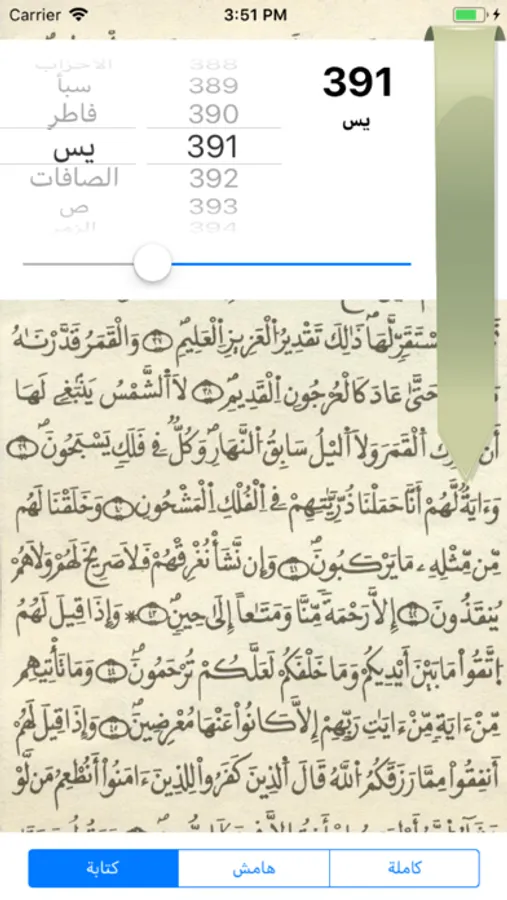 Carrier 3:51 PM
الأحزاب 388
سبأ 389
فاطر 390
يس 391
الصافات 392
ص 393
الزمر 394
391
يس
مُسْتَقَرٍّ لَّهَا ذَٰلِكَ تَقْدِيرُ الْعَزِيزِ الْعَلِيمِ ٣٧ وَالْقَمَرُ قَدَّرْنَٰهُ
حَتَّىٰ عَادَ كَالْعُرْجُونِ الْقَدِيمِ ٣٨ لَا الشَّمْسُ يَنۢبَغِي لَهَا
أَن تُدْرِكَ الْقَمَرَ وَلَا اَليْلُ سَابِقُ النَّهَارِ وَكُلٌّ فِي فَلَكٍ يَسْبَحُونَ ٣٩
وَءَايَةٌ لَّهُمْ أَنَّا حَمَلْنَا ذُرِّيَّٰتِهِمْ فِي الْفُلْكِ الْمَشْحُونِ ٤٠ وَخَلَقْنَا لَهُم
مِّن مِّثْلِهِ مَا يَرْكَبُونَ ٤١ وَإِن نَّشَأْ نُغْرِقْهُمْ فَلَا صَرِيخَ لَهُمْ وَلَا هُمْ
يُنقَذُونَ ٤٢ إِلَّا رَحْمَةً مِّنَّا وَمَتَٰعاً إِلَىٰ حِينٍ ٤٣ * وَإِذَا قِيلَ لَهُمُ
اتَّقُوا مَا بَيْنَ أَيْدِيكُمْ وَمَا خَلْفَكُمْ لَعَلَّكُمْ تُرْحَمُونَ ٤٤ وَمَا تَأْتِيهِم
مِّنْ ءَايَةٍ مِّنْ ءَايَٰتِ رَبِّهِمْ إِلَّا كَانُوا عَنْهَا مُعْرِضِينَ ٤٥ وَإِذَا قِيلَ لَهُمُ
أَنفِقُوا مِمَّا رَزَقَكُمُ اللَّهُ قَالَ الَّذِينَ كَفَرُوا لِلَّذِينَ ءَامَنُوا أَنُطْعِمُ مَن لَّوْ
كتابة هامش كاملة